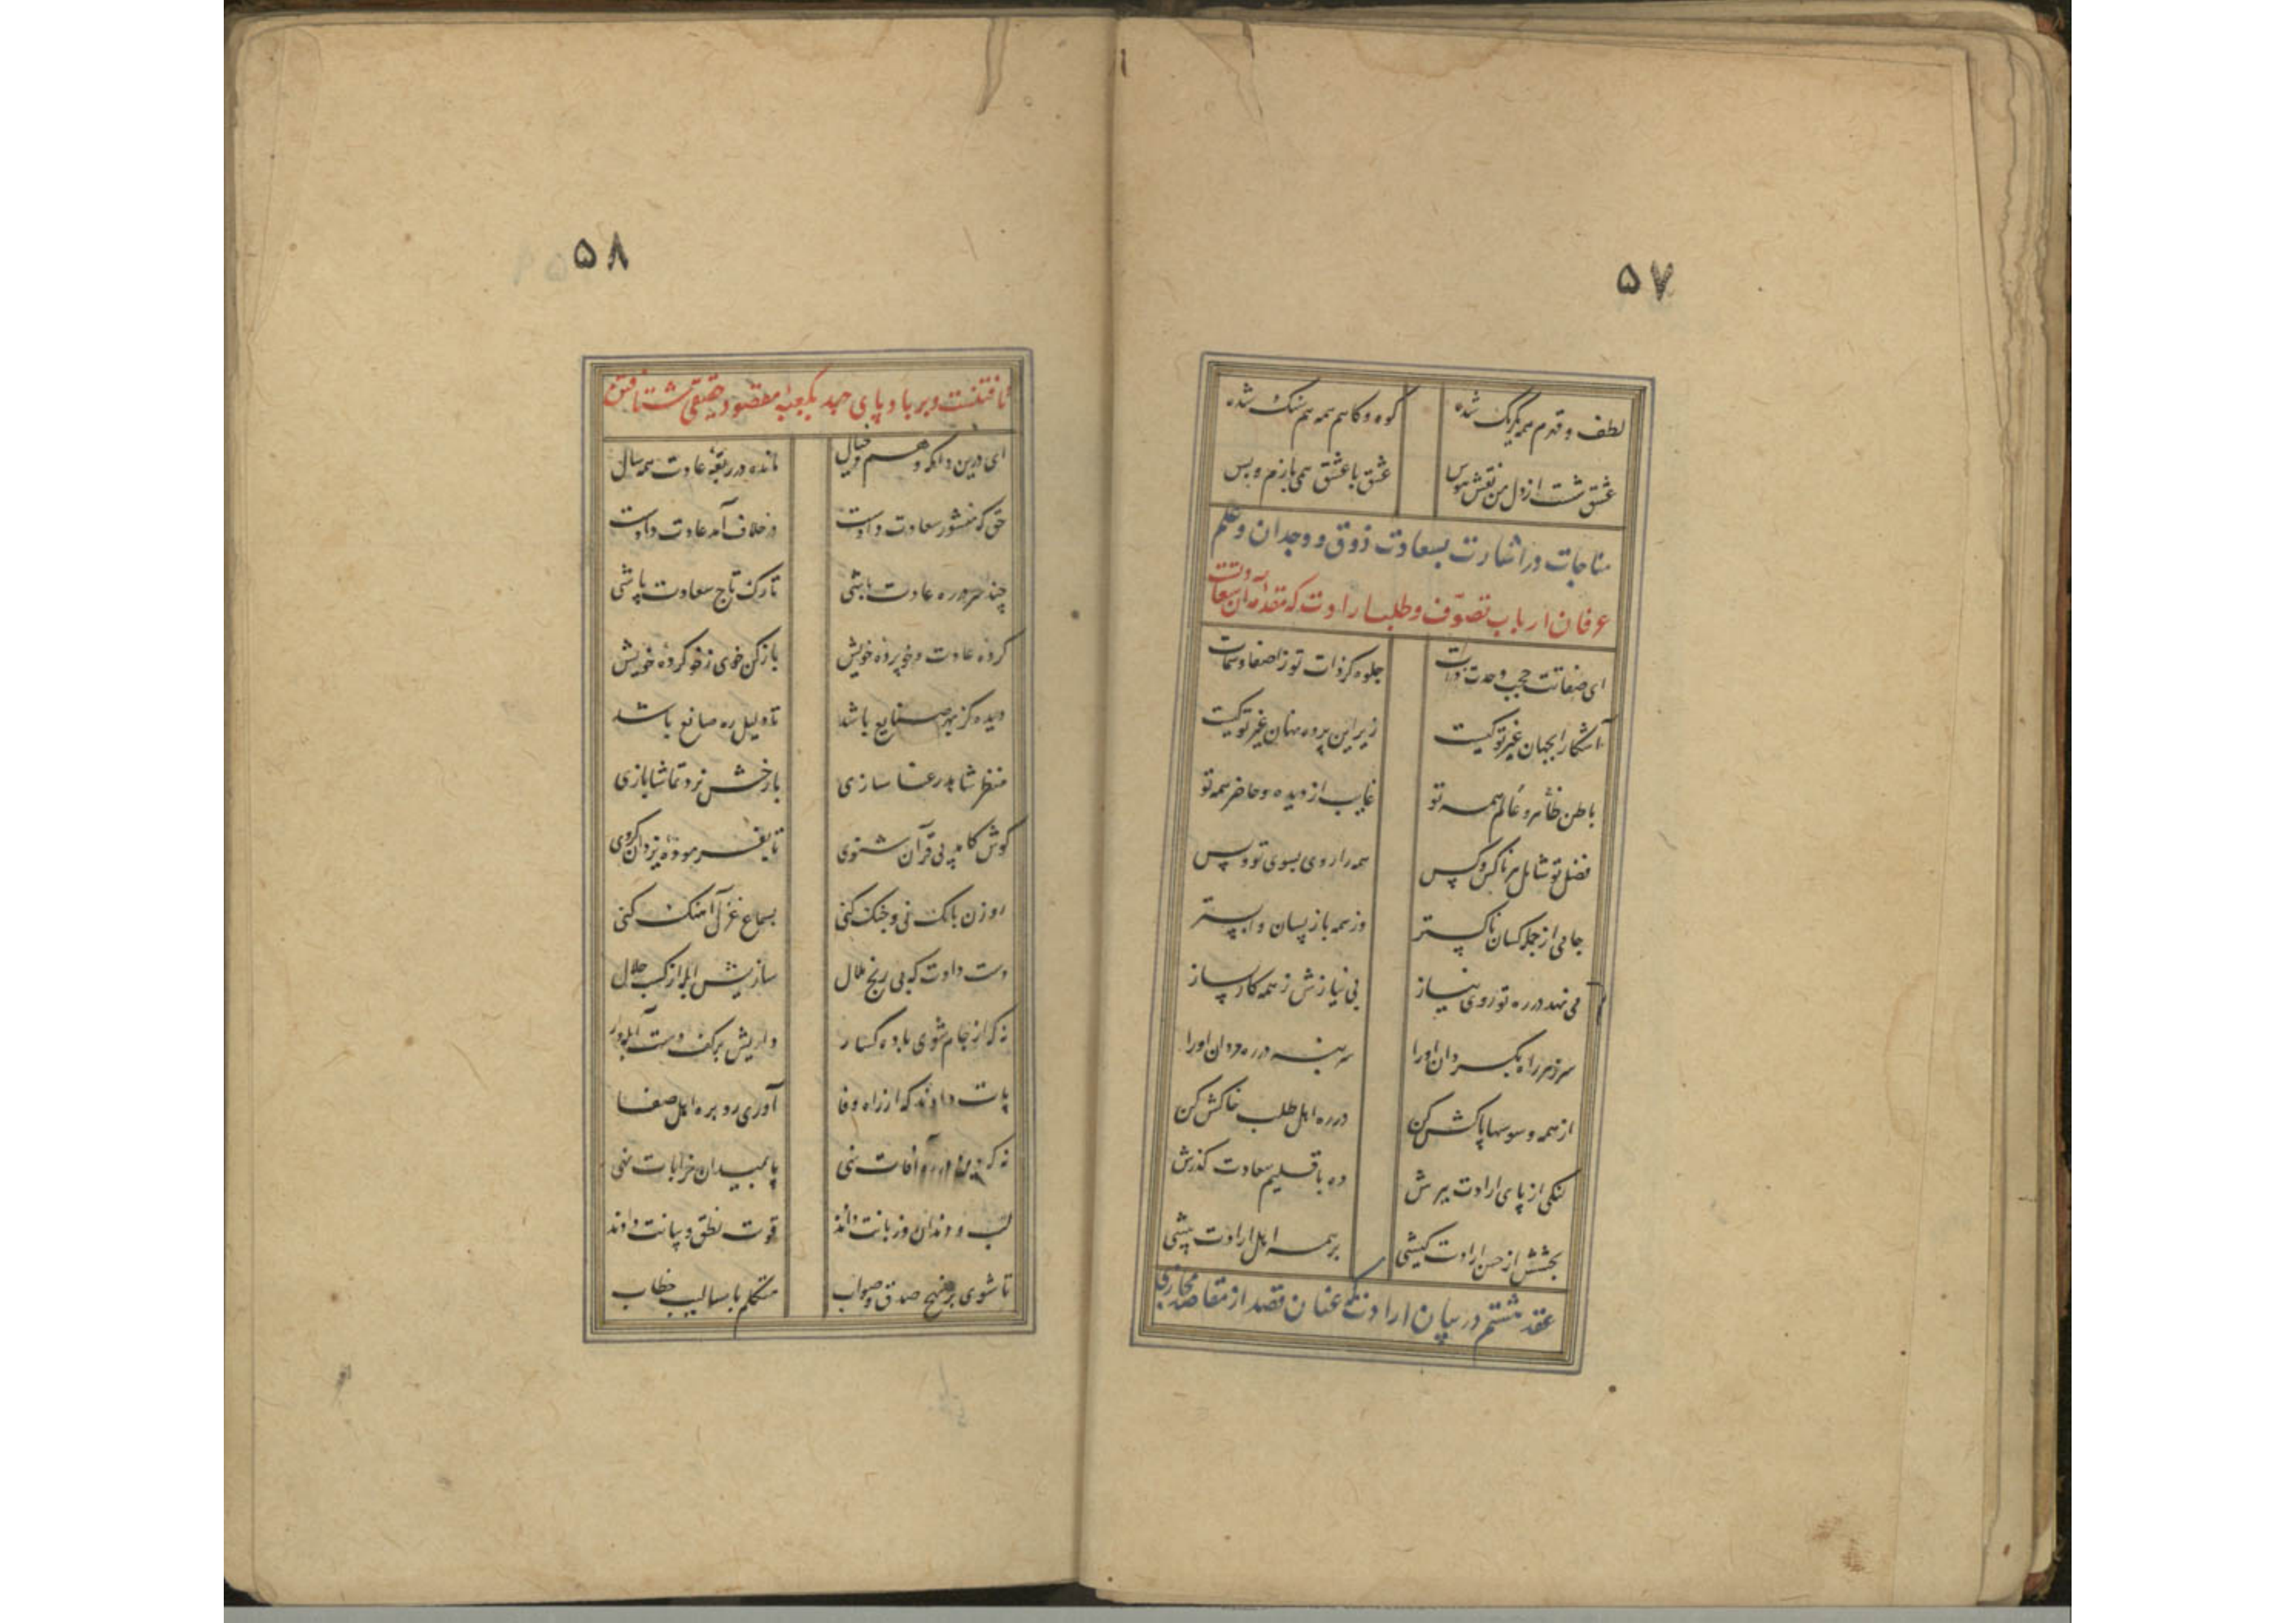 ۵۷
لطف و قهرم همه یکرنگ شده
کوه و کاهم همه همسنک شده
عشق شست از دل من نقش هوس
عشق با عشق همی بازم و بس
مناجات در اشارت بسعادت ذوق و وجدان و علم
عرفان ارباب تصوف و طلب ارادت که مقدمه آن سعادتست
ای صفاتت حجب وحدت ذات
جلوه کر ذات تو ز اصفا و سمات
آشکارا بجهان غیر تو کیست
زیر این پرده نهان غیر تو کیست
باطن و ظاهر عالم همه تو
غایب از دیده و حاضر همه تو
فضل تو شامل هر ناکس و کس
همه را روی بسوی تو و بس
جامی از جمله کسان ناکستر
وز همه بازپسان واپستر
می نهد در ره تو روی نیاز
بی نیازش ز همه کار بساز
سر ز هر راه بگردان او را
سر بنه در ره مردان او را
از همه وسوسها پاکش کن
در ره اهل طلب خاکش کن
لنکی از پای ارادت ببرش
ده باقلیم سعادت کذرش
بخشش از حسن ارادت کیشی
بر همه اهل ارادت پیشی
عقد هشتم در بیان ارادت که عنان قصد از مقاصد مجازی
۵۸
تافتنست و بر باد پای جهد بکعبه مقصود حقیقی شتافتن
ای درین دامکه وهم و خیال
مانده در ربقه عادت همه سال
حق که منشور سعادت دادت
در خلاف آمد عادت دادت
چند سر در ره عادت باشی
تارک تاج سعادت باشی
کرده عادت و خو پرده خویش
باز کن خوی ز خو کرده خویش
دیده کز بهر صنایع باشد
تا دلیل ره صانع باشد
منظر شاهد رعنا سازی
با رخش نرد تماشا بازی
کوش کامد پی قرآن شنوی
تا بفرموده یزدان کروی
روزن بانک نی و چنک کنی
بسماع غزل آهنک کنی
دست دادت که بی رنج ملال
سازیش آبله از کسب حلال
نه که از جام شوی باده کسار
داریش بر کف دست آبله وار
پات دادند که از راه وفا
آوری رو بره اهل صفا
نه که آفات نهی
پا بمیدان خرابات نهی
لب و دندان و زبانت دادند
قوت نطق و بیانت دادند
تا شوی بر نهج صدق و صواب
متکلم باسالیب خطاب